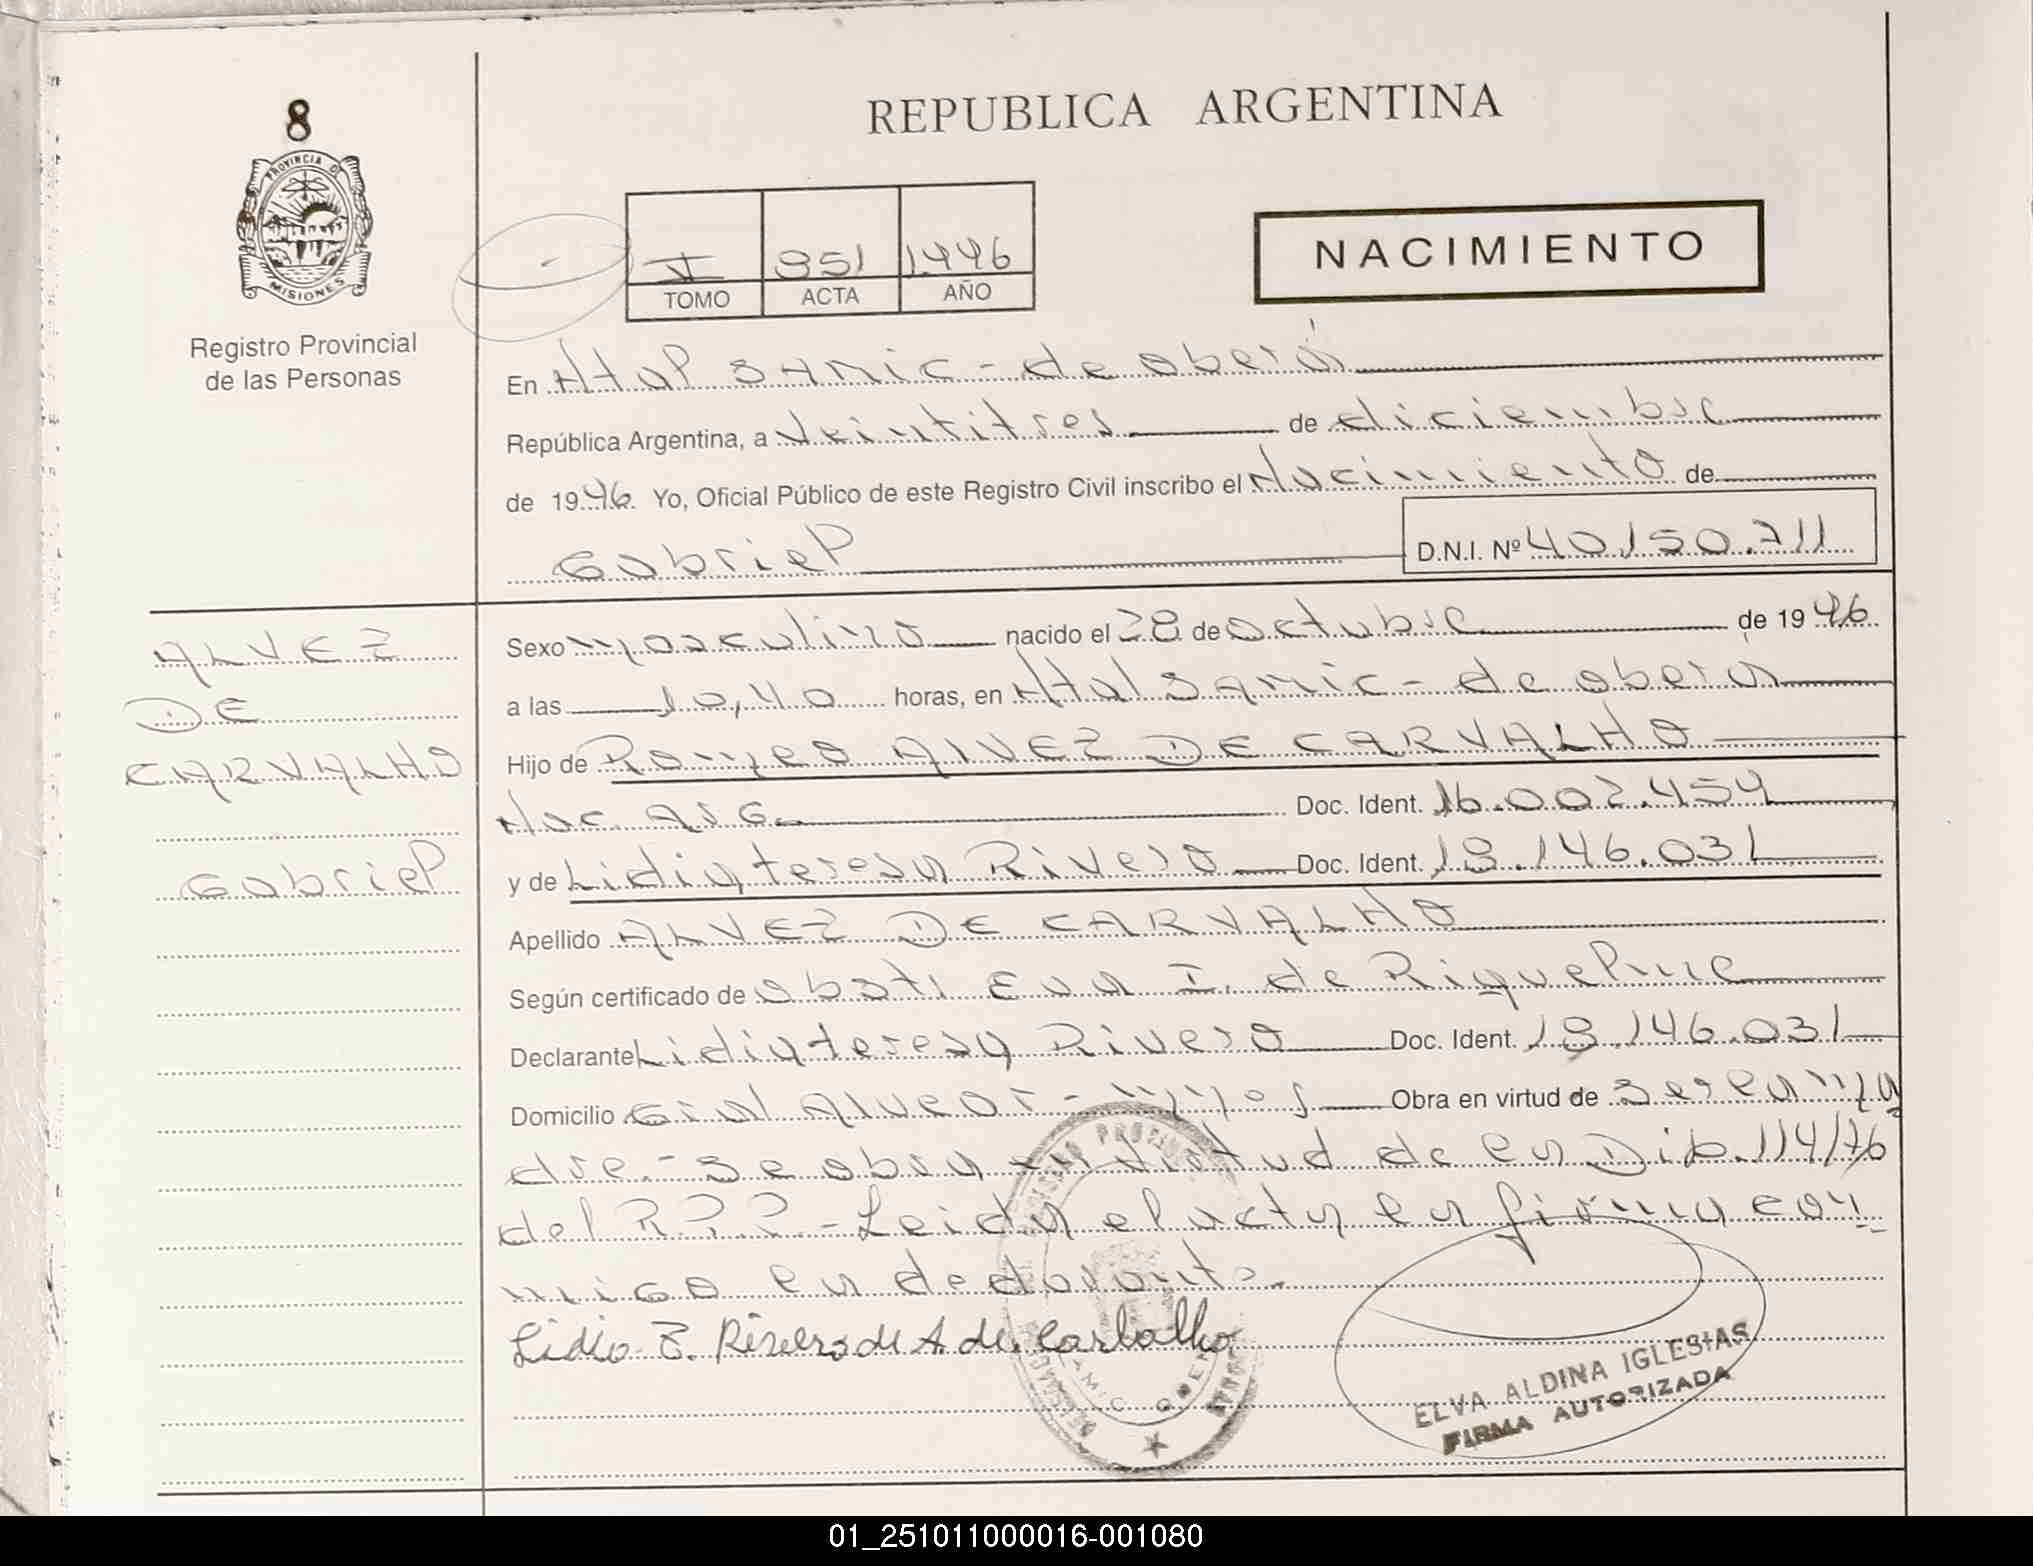 8
PROVINCIA DE
MISIONES
Registro Provincial
de las Personas
REPUBLICA ARGENTINA
I 851 1.996
TOMO ACTA AÑO
NACIMIENTO
En Htal SAMIC - de oberá
República Argentina, a veintitres de diciembre
de 1996 Yo, Oficial Público de este Registro Civil inscribo el Nacimiento de
Gabriel D.N.I. Nº 40.150.711
ALVEZ
DE
CARVALHO
Gabriel
Sexo masculino nacido el 28 de octubre de 1996
a las 10,40 horas, en Htal SAMIC - de oberá
Hijo de Romeo ALVEZ DE CARVALHO
Nac. Arg. Doc. Ident. 16.002.459
y de Lidia teresa Rivero Doc. Ident. 18.146.031
Apellido ALVEZ DE CARVALHO
Según certificado de obst. Eva I. de Riquelme
Declarante Lidia teresa Rivero Doc. Ident. 18.146.031
Domicilio Gral Alvear - Mnes Obra en virtud de ser la ma
dre.- Se obra en virtud de la Dip. 114/76
del R.P.P.- Leida el acta la firma con
migo la declarante.
Lidia T. Rivero de A. de Carbalho
ELVA ALDINA IGLESIAS
FIRMA AUTORIZADA
01_251011000016-001080